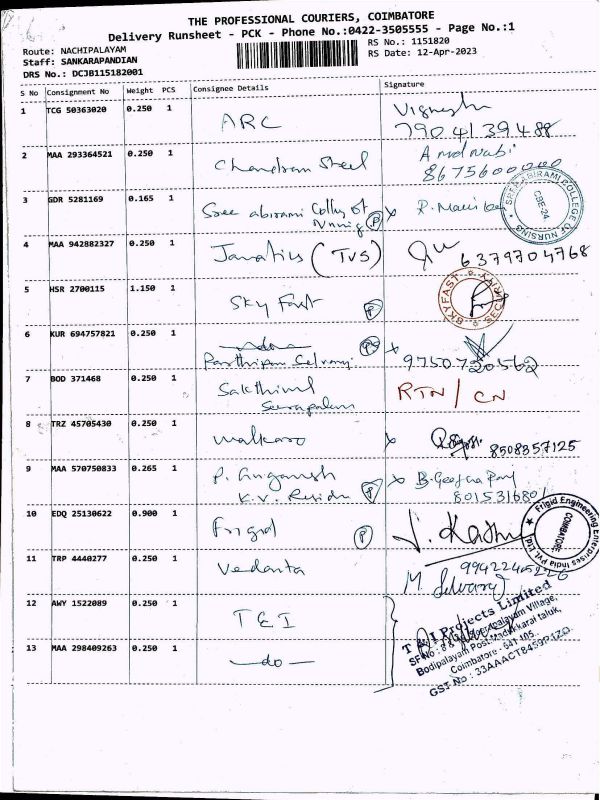 THE PROFESSIONAL COURIERS, COIMBATORE
Delivery Runsheet - PCK - Phone No.:0422-3505555 - Page No.:1
Route: NACHIPALAYAM
RS No.: 1151820
Staff: SANKARAPANDIAN
RS Date: 12-Apr-2023
DRS No.: DCJB115182001
S No Consignment No Weight PCS Consignee Details Signature
1 TCG 50363020 0.250 1 ARC Vignesh
7904139488
2 MAA 293364521 0.250 1 Chandran Steel
8675600000
3 GDR 5281169 0.165 1 Sree abirami
P x
SREE ABIRAMI COLLEGE OF NURSING
CBE-24
4 MAA 942882327 0.250 1 Janatics (TVS)
6379704768
5 HSR 2700115 1.150 1 Sky Fast P
SKYFAST SECURITY
6 KUR 694757821 0.250 1 P x
9750720562
7 BOD 371468 0.250 1 RTN / CN
8 TRZ 45705430 0.250 1 x 8508357125
9 MAA 570750833 0.265 1 P x B.
K.V. 8015316801
10 EDQ 25130622 0.900 1 Frigid P
Frigid Engineering Enterprises India Pvt. Ltd.
COIMBATORE
11 TRP 4440277 0.250 1 Vedanta 9942245226
M. Selvaraj
12 AWY 1522089 0.250 1 TEI
13 MAA 298409263 0.250 1 —do—
T & I Projects Limited
Bodipalayam Post, Madukkarai taluk,
Coimbatore - 641 105.
GST No : 33AAACT8459P1ZO